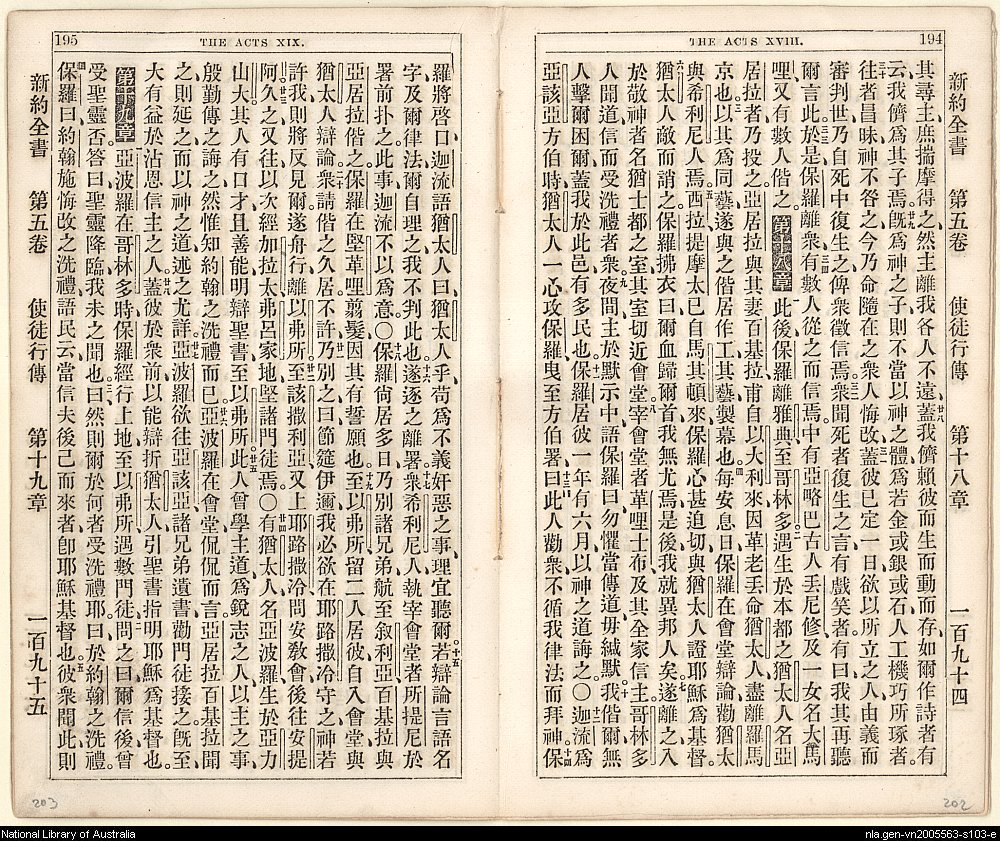 THE ACTS XVIII.
194
新約全書 第五卷 使徒行傳 第十八章 一百九十四
其尋主庶揣摩得之然主離我各人不遠蓋我儕賴彼而生而動而存如爾作詩者有
云我儕爲其子焉旣爲神之子則不當以神之體爲若金或銀或石人工機巧所琢者
往者昌昧神不咎之今乃命隨在之衆人悔改蓋彼已定一日欲以所立之人由義而
審判世乃自死中復生之俾衆徵信焉衆聞死者復生之言有戲笑者有曰我其再聽
爾言此於是保羅離衆有數人從之而信焉中有亞略巴古人丟尼修及一女名大馬
哩又有數人偕之第十八章此後保羅離雅典至哥林多遇生於本都之猶太人名亞
居拉者乃投之亞居拉與其妻百基拉甫自以大利來因革老丟命猶太人盡離羅馬
京也以其爲同藝遂與之偕居作工其藝製幕也每安息日保羅在會堂辯論勸猶太
與希利尼人焉西拉提摩太已自馬其頓來保羅心甚迫切與猶太人證耶穌爲基督
猶太人敵而誚之保羅拂衣曰爾血歸爾首我無尤焉是後我就異邦人矣遂離之入
於敬神者名猶士都之室其室切近會堂宰會堂者革哩士布及其全家信主哥林多
人聞道信而受洗禮者衆夜間主於默示中語保羅曰勿懼當傳道毋緘默我偕爾無
人擊爾困爾蓋我於此邑有多民也保羅居彼一年有六月以神之道誨之〇迦流爲
亞該亞方伯時猶太人一心攻保羅曳至方伯署曰此人勸衆不循我律法而拜神保
THE ACTS XIX.
195
羅將啓口迦流語猶太人曰猶太人乎苟爲不義奸惡之事理宜聽爾若辯論言語名
字及爾律法爾自理之我不判此也遂逐之離署衆希利尼人執宰會堂者所提尼於
署前扑之此事迦流不以爲意〇保羅尙居多日乃別諸兄弟航至叙利亞百基拉與
亞居拉偕之保羅在堅革哩翦髮因其有誓願也至以弗所留二人居彼自入會堂與
猶太人辯論衆請偕之久居不許乃別之曰節筵伊邇我必欲在耶路撒冷守之神若
許我則將反見爾遂舟行離以弗所至該撒利亞又上耶路撒冷問安敎會後往安提
阿久之又往以次經加拉太弗呂家地堅諸門徒焉〇有猶太人名亞波羅生於亞力
山大其人有口才且善能明辯聖書至以弗所此人曾學主道爲銳志之人以主之事
殷勤傳之誨之然惟知約翰之洗禮而已亞波羅在會堂侃侃而言亞居拉百基拉聞
之則延之而以神之道述之尤詳亞波羅欲往亞該亞諸兄弟遺書勸門徒接之旣至
大有益於沾恩信主之人蓋彼於衆前以能辯折猶太人引聖書指明耶穌爲基督也
第十九章亞波羅在哥林多時保羅經行上地至以弗所遇數門徒問之曰爾信後曾
受聖靈否答曰聖靈降臨我未之聞也曰然則爾於何者受洗禮耶曰於約翰之洗禮
保羅曰約翰施悔改之洗禮語民云當信夫後己而來者卽耶穌基督也彼衆聞此則
新約全書 第五卷 使徒行傳 第十九章 一百九十五
203
202
National Library of Australia
nla.gen-vn2005563-s103-e